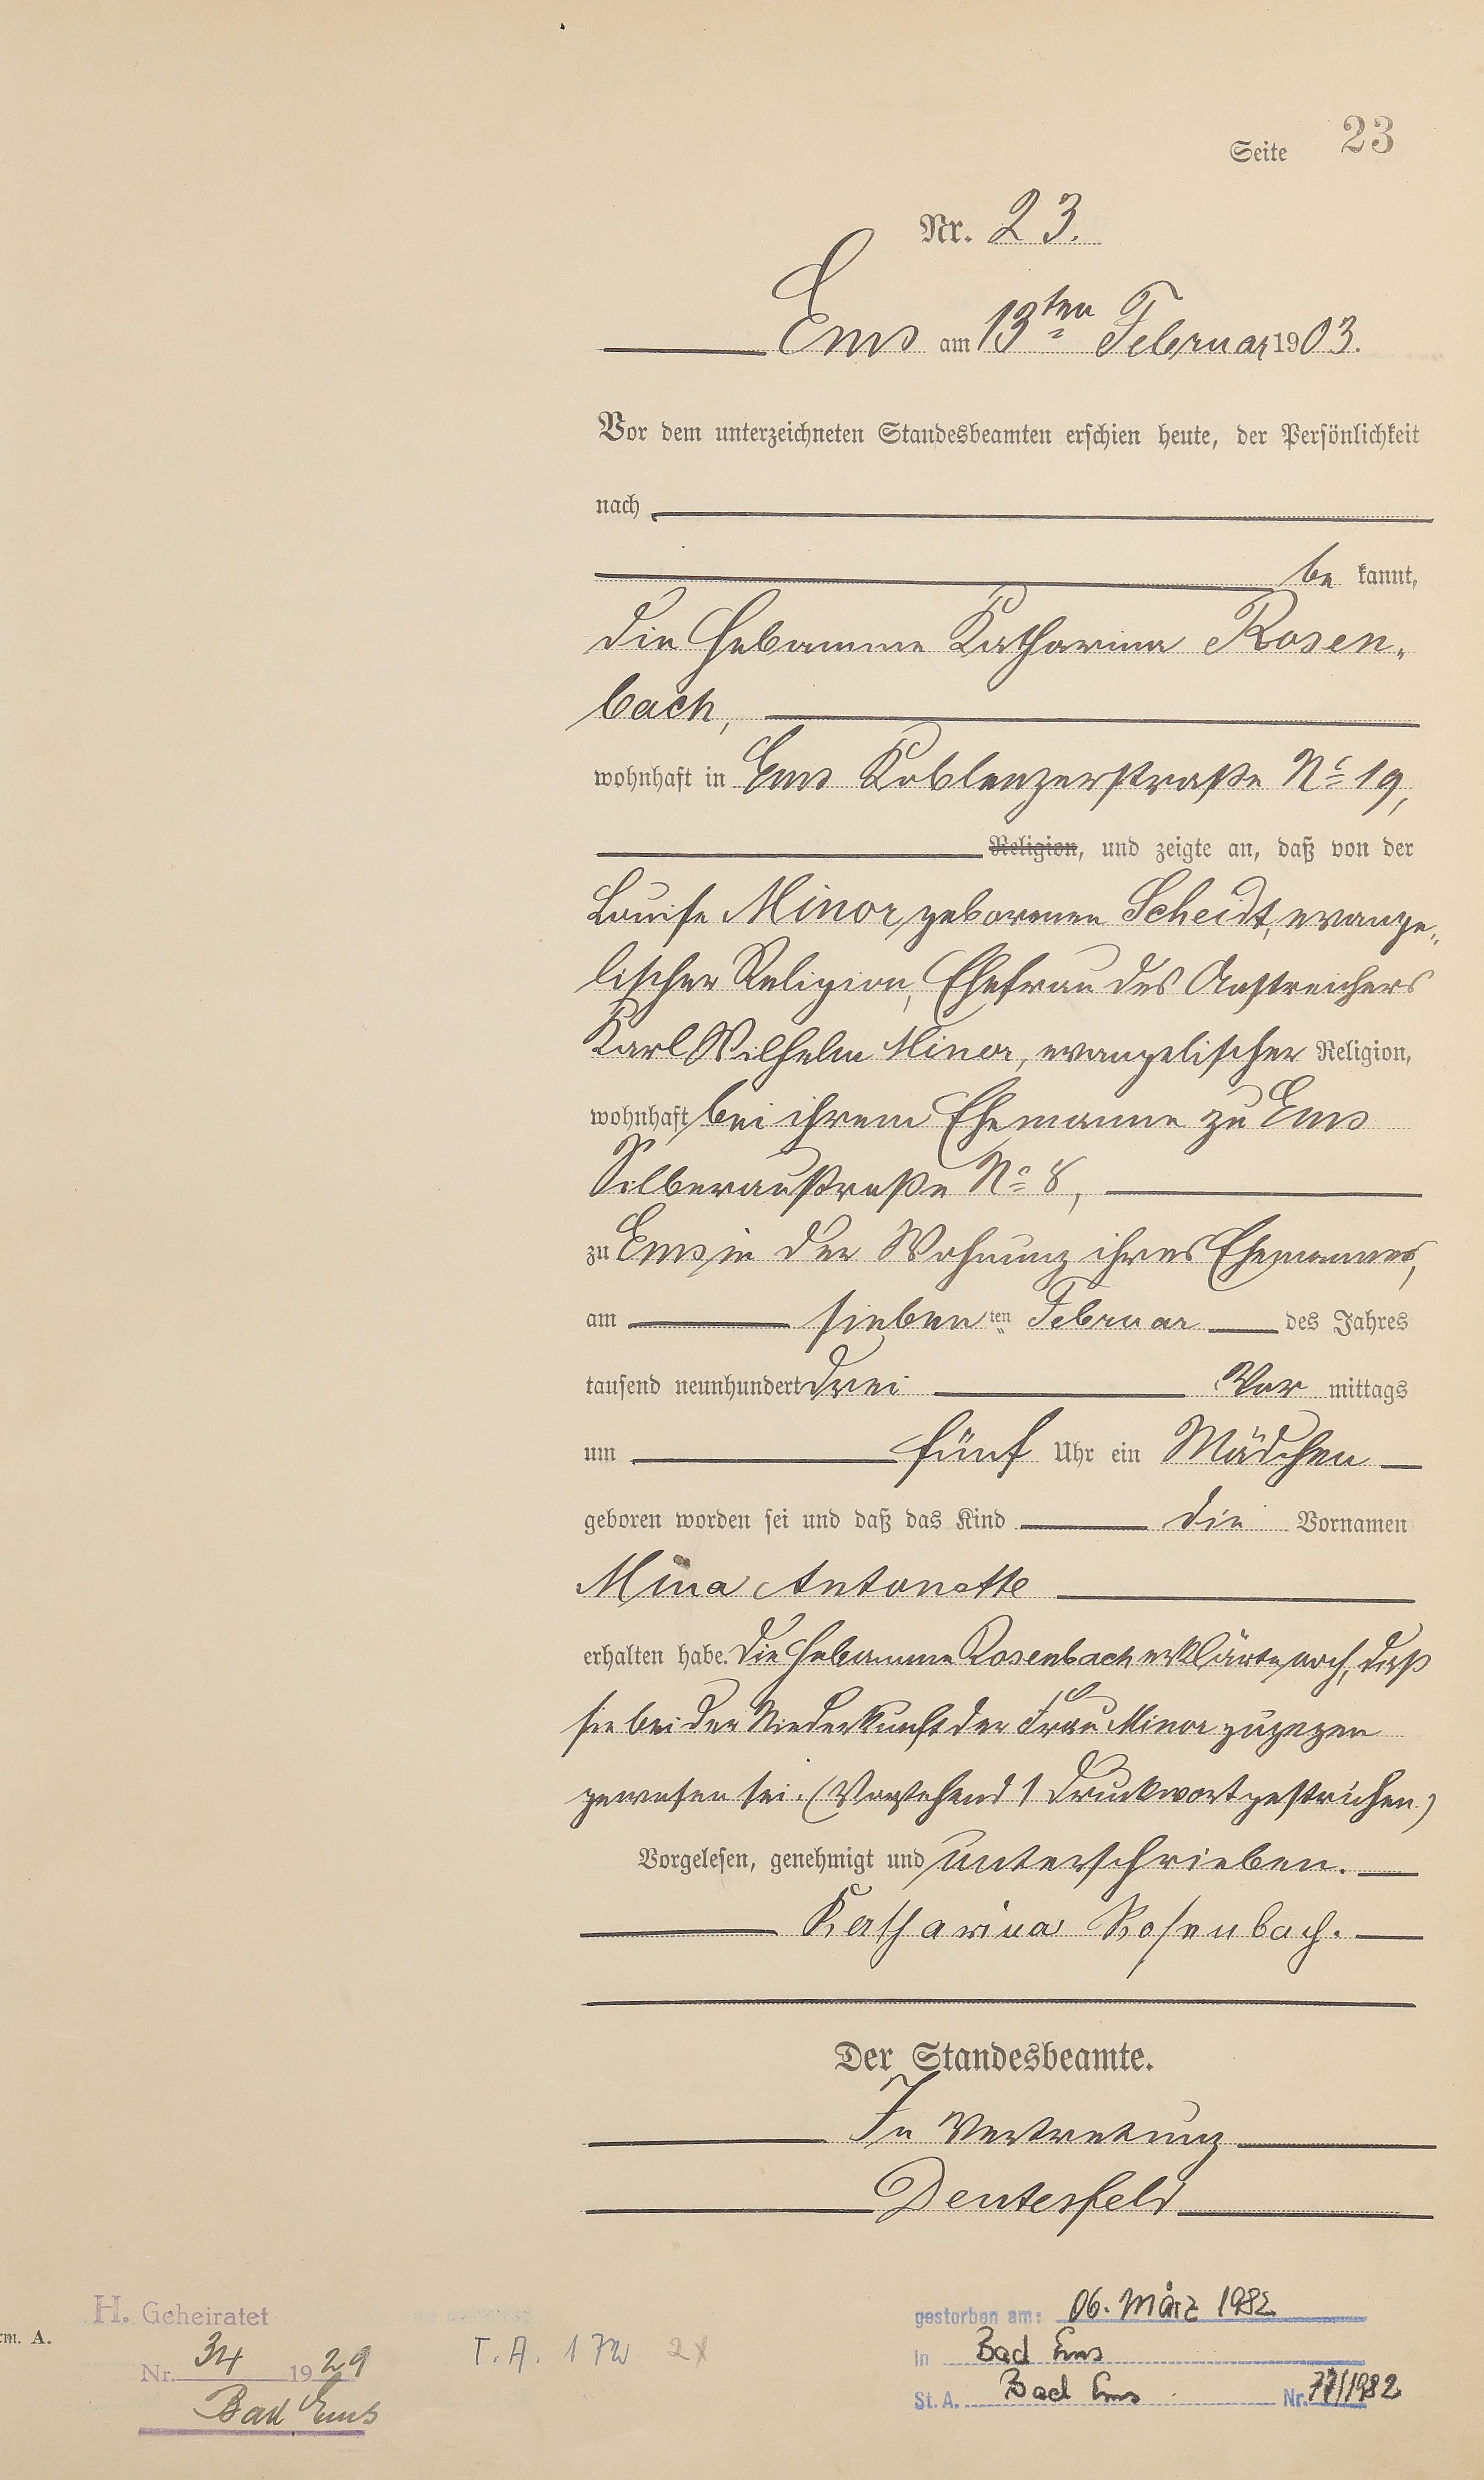 Seite 23
Nr. 23.
Ems am 13ten Februar 1903.
Vor dem unterzeichneten Standesbeamten erschien heute, der Persönlichkeit
nach
be kannt,
die Hebamme Katharina Rosen-
bach,
wohnhaft in Ems Koblenzerstraße No 19,
Religion, und zeigte an, daß von der
Louise Minor geborenen Scheidt, evange-
lischer Religion, Ehefrau des Anstreichers
Karl Wilhelm Minor, evangelischer Religion,
wohnhaft bei ihrem Ehemanne zu Ems
Silberaustraße No 8,
zu Ems in der Wohnung ihres Ehemannes,
am siebenten Februar des Jahres
tausend neunhundert drei Vor mittags
um fünf Uhr ein Mädchen
geboren worden sei und daß das Kind die Vornamen
Mina Antonette
erhalten habe. Die Hebamme Rosenbach erklärte noch, daß
sie bei der Niederkunft der Frau Minor zugegen
gewesen sei. (Vorstehend 1 Druckwort gestrichen)
Vorgelesen, genehmigt und unterschrieben.
Katharina Rosenbach.
Der Standesbeamte.
In Vertretung
Deutesfeld
H. Geheiratet
Nr. 34 1929
Bad Ems
rm. A.
T. A. 172 2x
gestorben am: 06. März 1982
in Bad Ems
St. A. Bad Ems Nr. 77/1982